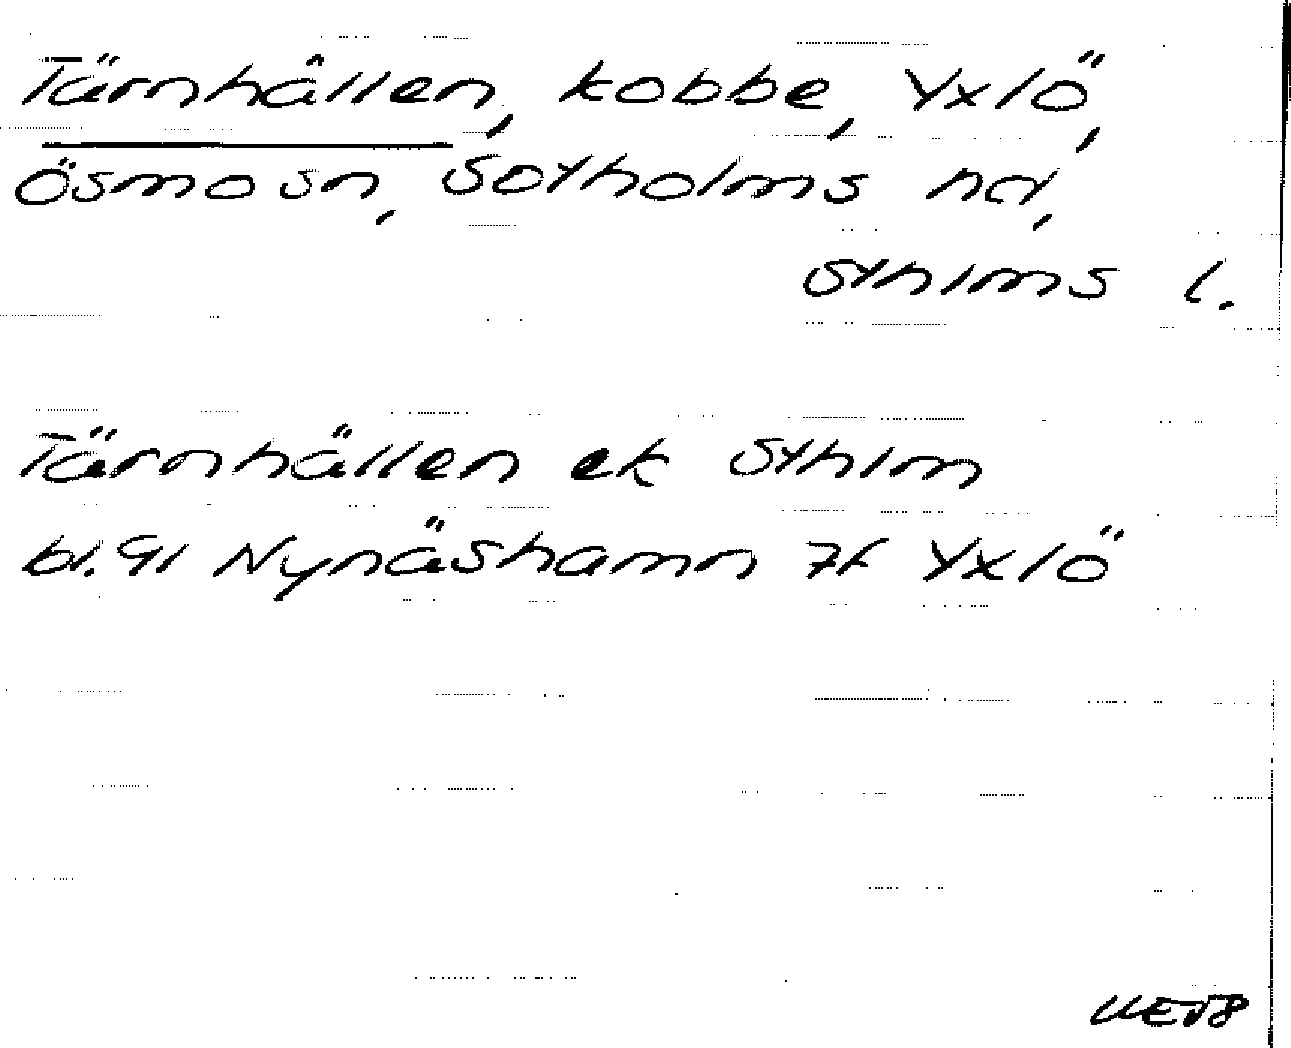 Tärnhällen, kobbe, Yxlö,
Ösmo sn, Sotholms hd,
Sthlms l.
Tärnhällen ek Sthlm
bl. 91 Nynäshamn 7f Yxlö